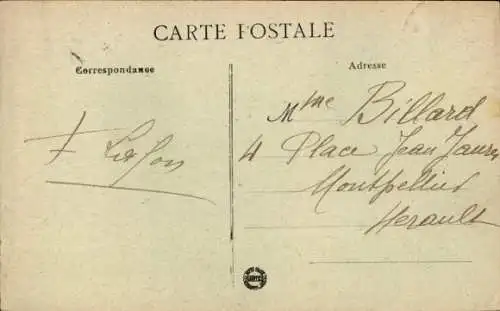 CARTE POSTALE
Correspondance
Adresse
Mme Billard
4 Place Jean Jaurès
Montpellier
Herault
F Lafon